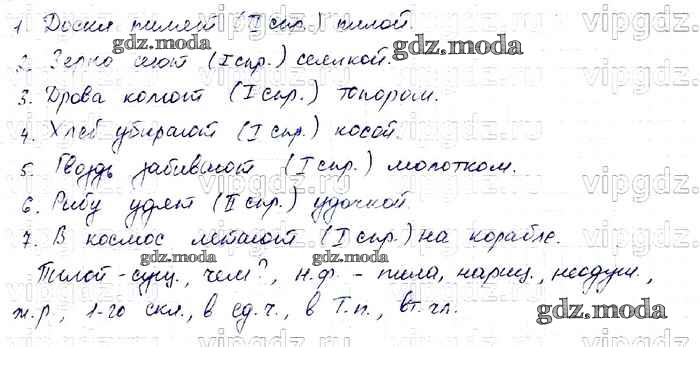 1. Доски пилят (II спр.) пилой.
2. Зерно сеют (I спр.) сеялкой.
3. Дрова колют (I спр.) топором.
4. Хлеб убирают (I спр.) косой.
5. Гвоздь забивают (I спр.) молотком.
6. Рыбу удят (II спр.) удочкой.
7. В космос летают (I спр.) на корабле.
Пилой - сущ., чем?, н.ф. - пила, нариц., неодуш.,
ж.р., 1-го скл., в ед.ч., в Т.п., вт.чл.
gdz.moda
gdz.moda
gdz.moda
gdz.moda
gdz.moda
gdz.moda
vipgdz